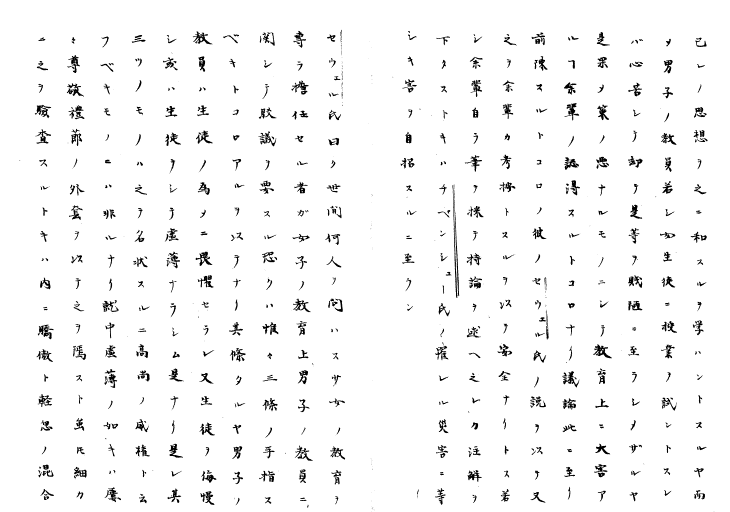 己レノ思想ヲ之ニ和スルヲ学ハントスルヤ而
メ男子ノ教員若シ如生徒ニ授業ヲ試ントスレ
バ心苦シテ却テ是等ヲ賤陋ニ至ラシメザルヤ
是果メ策ノ悪ナルモノニシテ教育上ニ大害ア
ルヿ余輩ノ認得スルトコロナリ議論此ニ至リ
前陳スルトコロノ彼ノセウエル氏ノ説ヲ以テ又
之ヲ余輩カ考按トスルヲ以テ安全ナリトス若
シ余輩自ラ筆ヲ採テ持論ヲ述ヘ之レカ注解ヲ
下タストキハチベンシュー氏ノ罹レル災害ニ等
シキ害ヲ自招スルニ至ラン
セウエル氏曰ク世間何人ヲ問ハス少女ノ教育ヲ
専ラ擔任セル者ガ女子ノ教育上男子ノ教員ニ
関シテ商議ヲ要スル恐クハ惟々三條ノ手指ス
ベキトコロアルヲ以テナリ其條タルヤ男子ノ
教員ハ生徒ノ為メニ畏懼セラレ又生徒ヲ侮慢
シ或ハ生徒ヲシテ虚薄ナラシム是ナリ是レ其
三ツノモノハ之ヲ名状スルニ高尚ノ威権ト云
フベキモノニハ非ルナリ就中虚薄ノ如キハ屡
々尊敬禮節ノ外套ヲ以テ之ヲ隠スト虽ﾓ細カ
ニ之ヲ驗査スルトキハ内ニ驕傲ト軽忽ノ混合